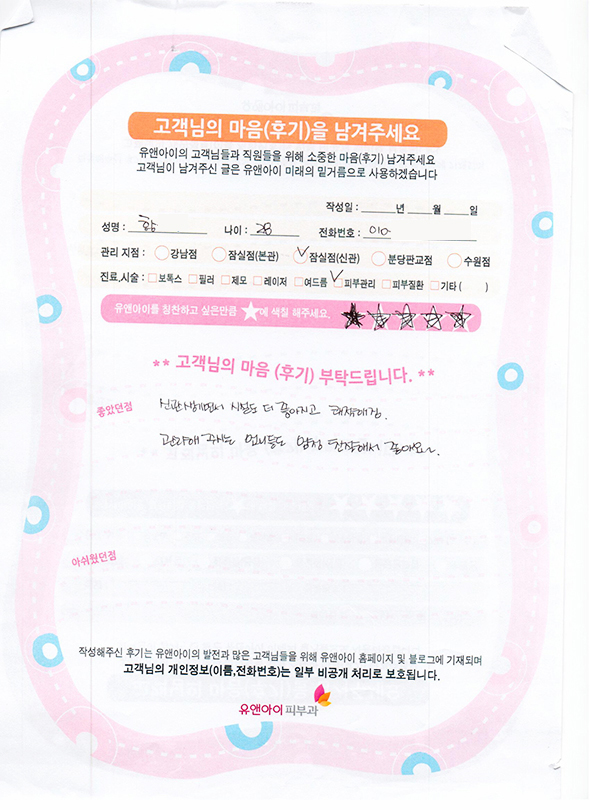 고객님의 마음(후기)을 남겨주세요
유앤아이의 고객님들과 직원들을 위해 소중한 마음(후기) 남겨주세요
고객님이 남겨주신 글은 유앤아이 미래의 밑거름으로 사용하겠습니다
작성일 : 년 월 일
성명 : 황 나이 : 28 전화번호 : 010
관리 지점 : 강남점 잠실점(본관) 잠실점(신관) 분당판교점 수원점
진료,시술 : 보톡스 필러 제모 레이저 여드름 피부관리 피부질환 기타 ( )
유앤아이를 칭찬하고 싶은만큼 ★에 색칠 해주세요.
** 고객님의 마음 (후기) 부탁드립니다. **
좋았던점 신관 시설도 더 좋아지고
관리해 주시는 언니들도 엄청 친절해서 좋아요~.
아쉬웠던점
작성해주신 후기는 유앤아이의 발전과 많은 고객님들을 위해 유앤아이 홈페이지 및 블로그에 기재되며
고객님의 개인정보(이름,전화번호)는 일부 비공개 처리로 보호됩니다.
유앤아이 피부과